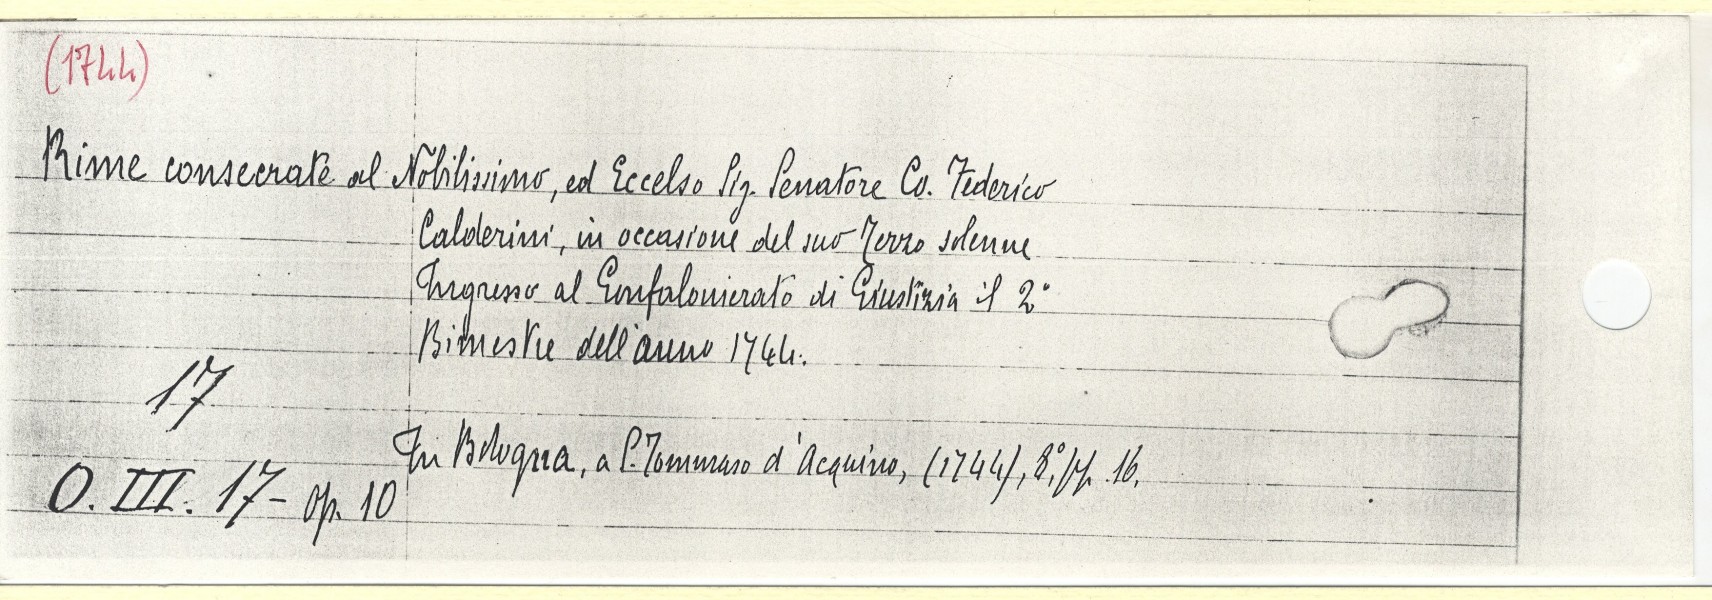 (1744)
Rime consecrate al Nobilissimo, ed Eccelso Sig. Senatore Co. Federico
Calderini, in occasione del suo Terzo solenne
Ingresso al Gonfalonierato di Giustizia il 2°
Bimestre dell'anno 1744.
17
In Bologna, a S. Tommaso d'Acquino, (1744), 8°, pp. 16.
O. III. 17 - op. 10